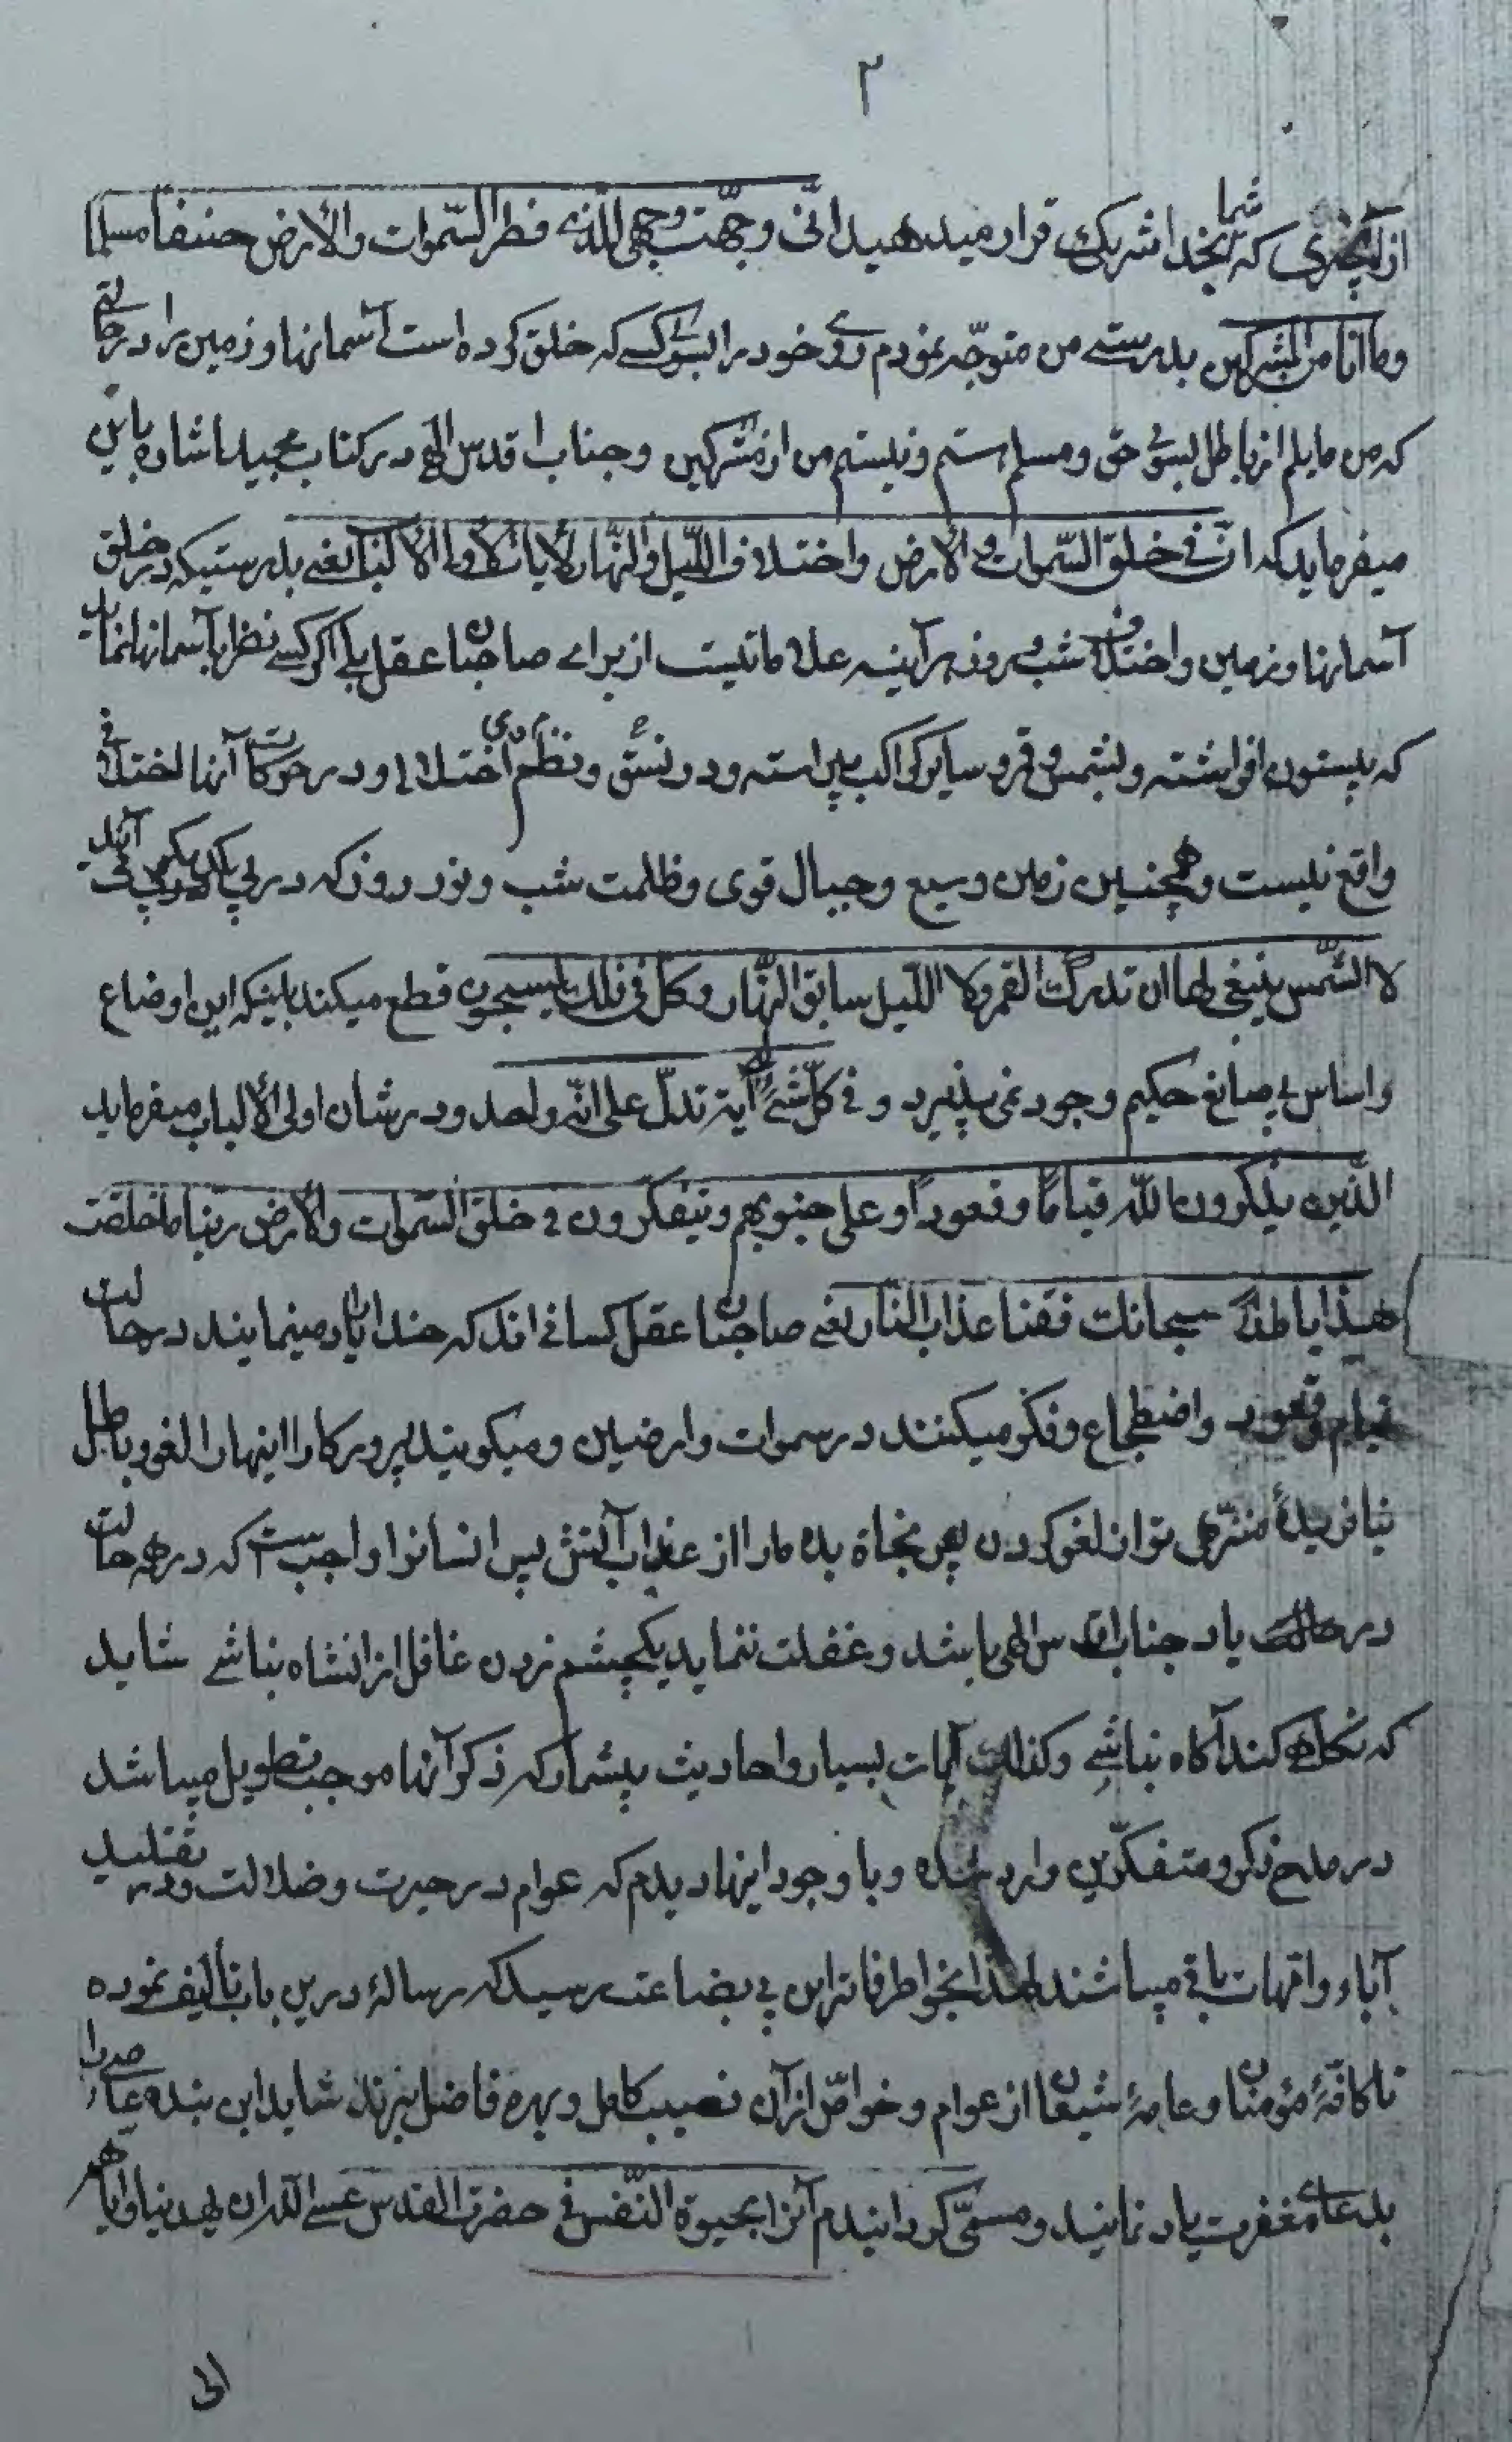 ۲
از آنچیزی که شما بخدا شریک قرار میدهید انّی وجّهت وجهی للّذی فطر السّموات والأرض حنیفا مسلما
وما انا من المشرکین بدرستے من متوجّه نمودم روی خود را بسوی کسے که خلق کرده است آسمانها وزمین را در حالتے
که من مایلم از باطل بسوی حق ومسلم هستم ونیستم من از مشرکین وجناب اقدس الهی در کتاب مجید اشاره باین
میفرماید که انّ فی خلق السّموات والأرض واختلاف اللّیل والنّهار لأیات لأولی الألباب یعنے بدرستیکه در خلق
آسمانها وزمین واختلاف شب وروز هر آینه علاماتیست از برای صاحبان عقل بلی اگر کسے نظر بآسمانها نماید
که بیستون افراشته وبشمس وقمر وسایر کواکب پیراسته ودر نسق ونظم اختلالی ودر حرکات آنها اختلافی
واقع نیست وهمچنین زمین وسیع وجبال قوی وظلمت شب ونور روز که در پی یکدیگر می آیند
لا الشّمس ینبغی لها ان تدرک القمر ولا اللّیل سابق النّهار وکل فی فلک یسبحون قطع میکند باینکه این اوضاع
واساس بی صانع حکیم وجود نمی پذیرد و فی کلّ شیئ له آیة تدلّ علی انّه واحد ودر شان اولی الألباب میفرماید
الّذین یذکرون اللّه قیاماً وقعوداً وعلی جنوبهم ویتفکّرون فی خلق السّموات والأرض ربّنا ما خلقت
هذا باطلاً سبحانک فقنا عذاب النّار یعنے صاحبان عقل کسانی اند که خدا را یاد مینمایند در حالت
قیام وقعود واضطجاع وفکر میکنند در سموات وارضین ومیکویند پرورکارا اینها را لغو وباطل
نیافریدهٔ منزّهی تو از لغو کردن پس نجاة بده ما را از عذاب آتش پس انسانرا واجب است که در همه حالت
در حالت یاد جناب اقدس الهی باشد وغفلت ننماید یکچشم زدن غافل از انشاه نباشے شاید
که نکاهی کند آکاه نباشے وکذلک آیات بسیار واحادیث بیشمار که ذکر آنها موجب تطویل میباشد
در مدح ذکر ومتفکّرین وارد شده وبا وجود اینها دیدم که عوام در حیرت وضلالت ودر تقلید
آباء وامّهات باقی میباشند لهذا بخواطر فاتر این بی بضاعت رسید که رسالهٔ درین باب تألیف نموده
تا کافّهٔ مؤمنان وعامهٔ شیعیان از عوام وخواصّ از آن نصیب کامل وبهره فاضل برند شاید این بنده عاصی را
بدعای مغفرت یاد نمایند ومسمّی کردانیدم آنرا بحیوة النّفس فی حضرت القدس عسے اللّه ان یهدینا وایاهم
الی